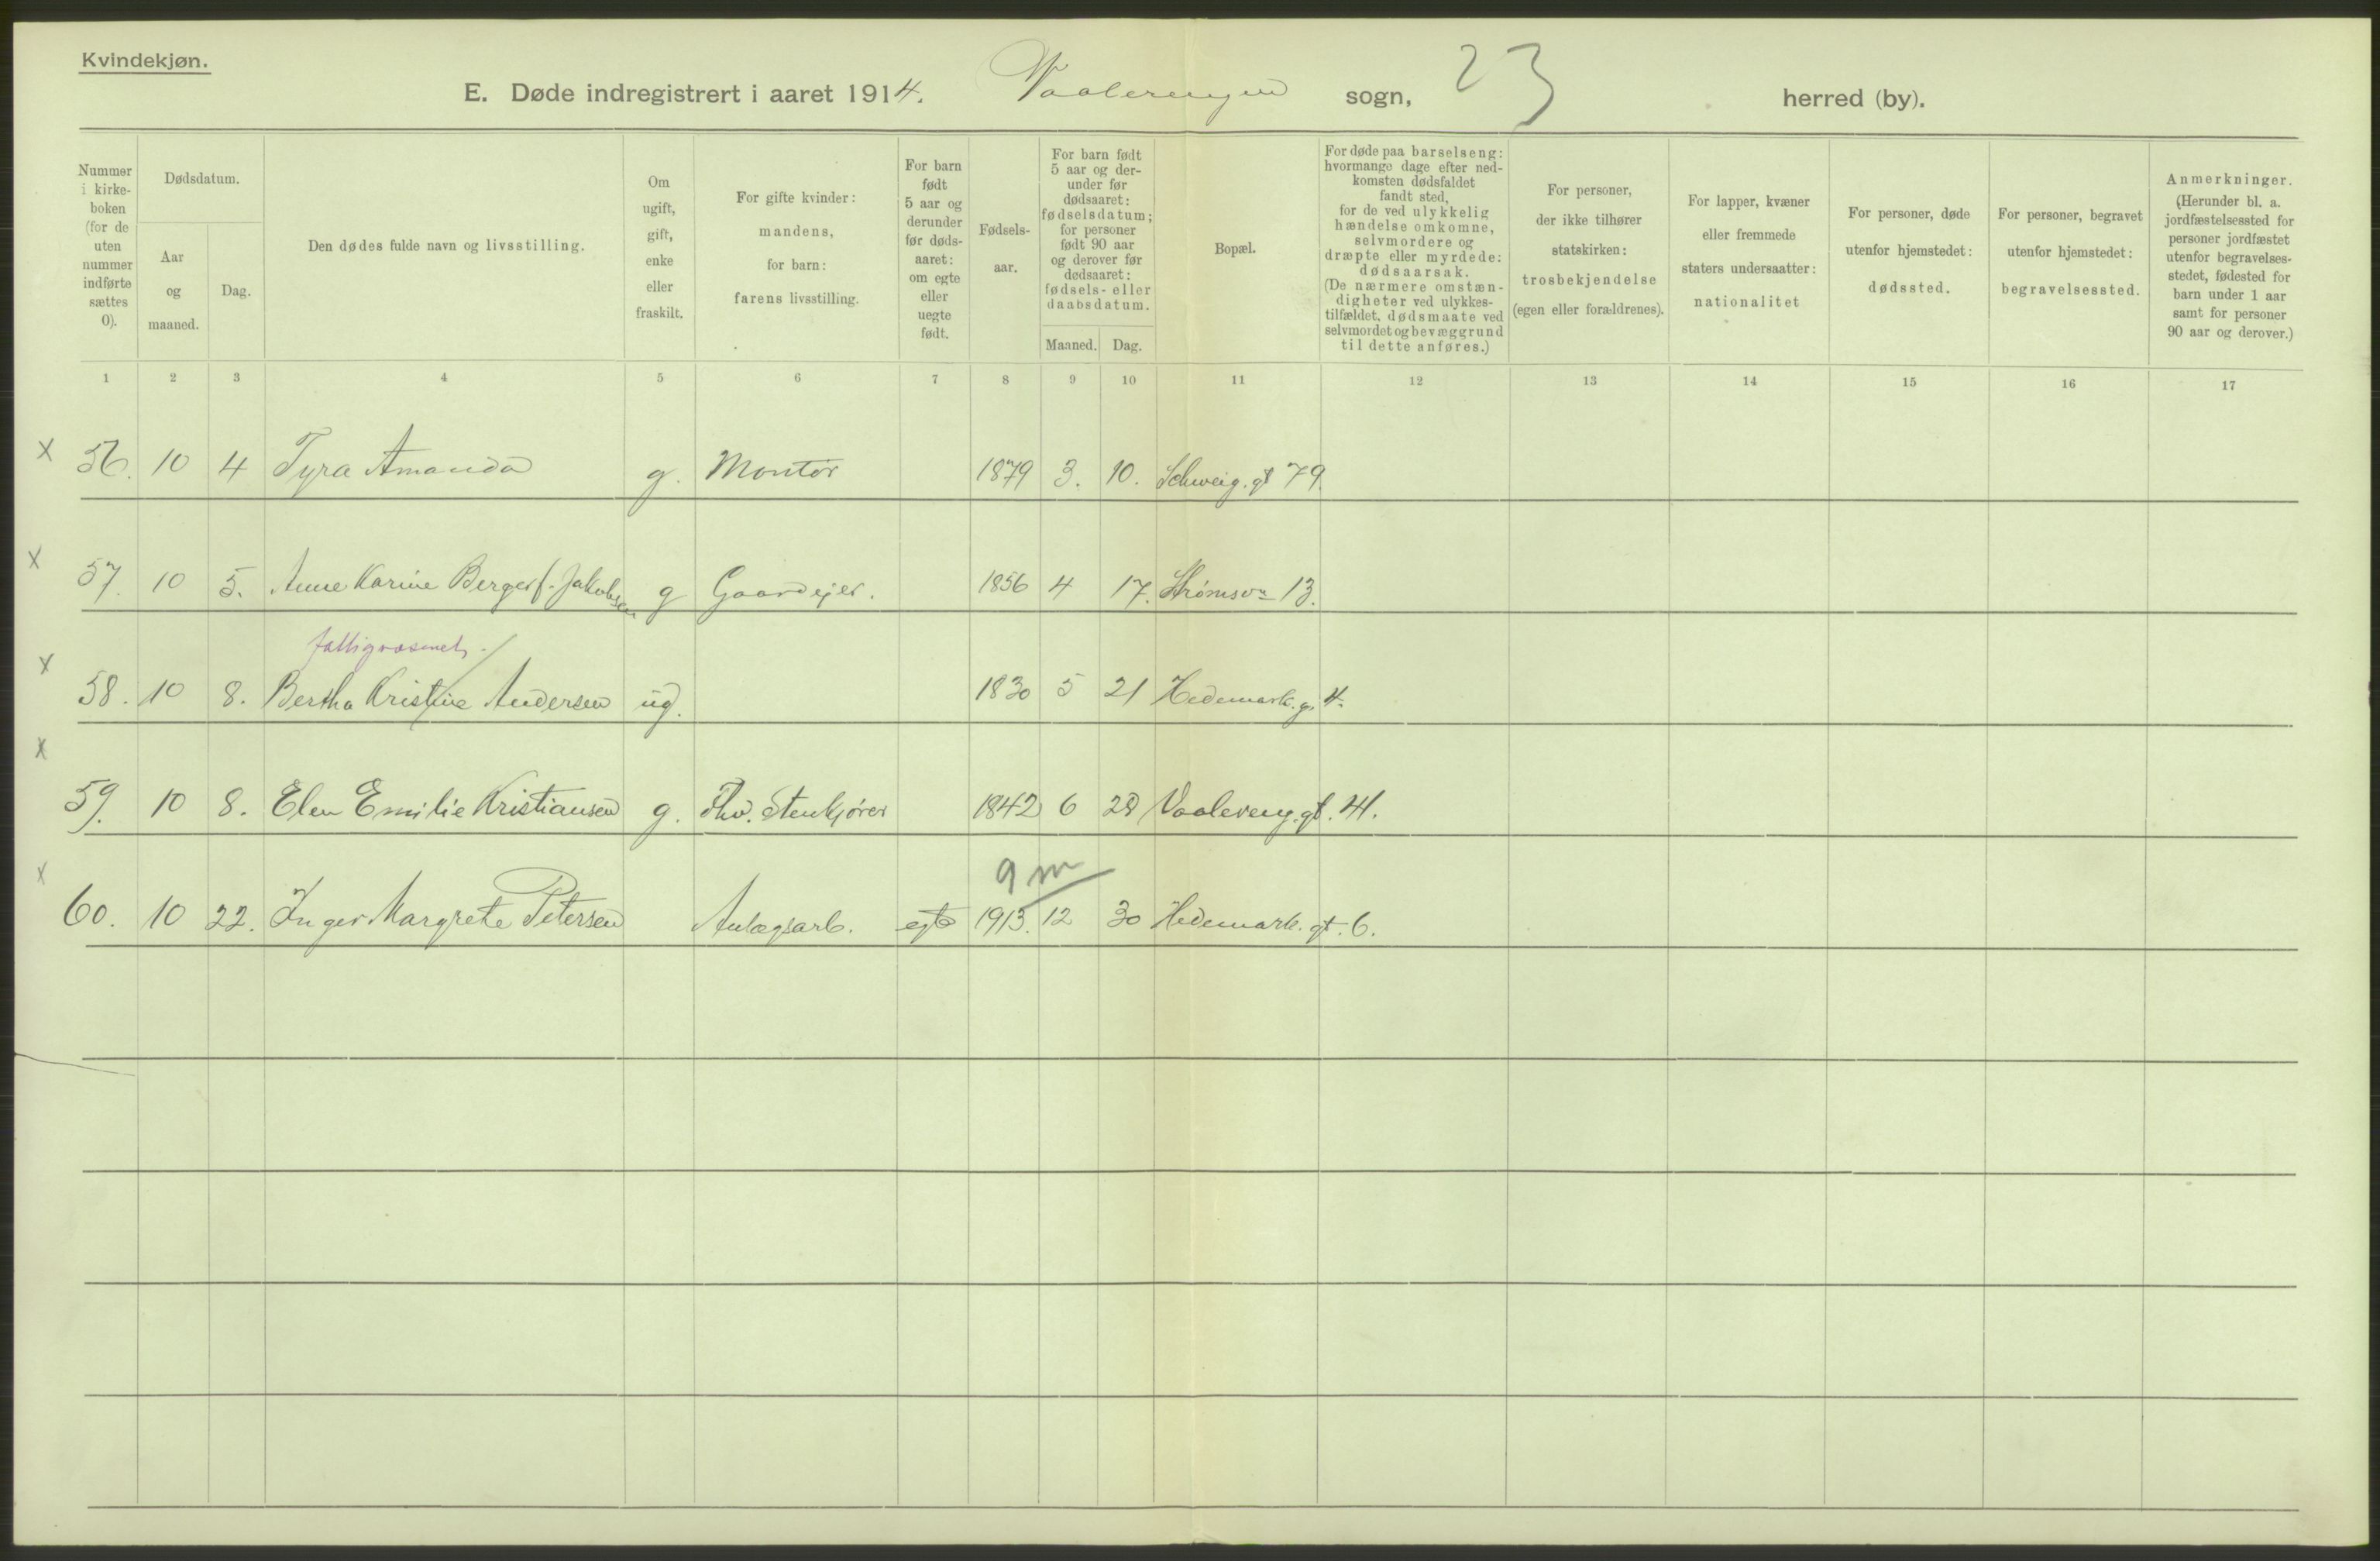 Kvindekjøn.
E. Døde indregistrert i aaret 1914. Vaalerengen sogn, 23 herred (by).
Nummer i kirkeboken (for de uten nummer indførte sættes 0).
Dødsdatum.
Aar og maaned.
Dag.
Den dødes fulde navn og livsstilling.
Om ugift, gift, enke eller fraskilt.
For gifte kvinder: mandens, for barn: farens livsstilling.
For barn født 5 aar og derunder før dødsaaret: om egte eller uegte født.
Fødselsaar.
For barn født 5 aar og derunder før dødsaaret: fødselsdatum; for personer født 90 aar og derover før dødsaaret: fødsels- eller daabsdatum.
Maaned.
Dag.
Bopæl.
For døde paa barselseng: hvormange dage efter nedkomsten dødsfaldet fandt sted, for de ved ulykkelig hændelse omkomne, selvmordere og dræpte eller myrdede: dødsaarsak. (De nærmere omstændigheter ved ulykkestilfældet, dødsmaate ved selvmordet og bevæggrund til dette anføres.)
For personer, der ikke tilhører statskirken: trosbekjendelse (egen eller forældrenes).
For lapper, kvæner eller fremmede staters undersaatter: nationalitet
For personer, døde utenfor hjemstedet: dødssted.
For personer, begravet utenfor hjemstedet: begravelsessted.
Anmerkninger. (Herunder bl. a. jordfæstelsessted for personer jordfæstet utenfor begravelsesstedet, fødested for barn under 1 aar samt for personer 90 aar og derover.)
1 2 3 4 5 6 7 8 9 10 11 12 13 14 15 16 17
x 56. 10 4 Tyra Amanda g. Montør 1879 3. 10. Schweig. gt 79.
x 57. 10 5. Anne Karine Berger f. Jakobsen g Gaardejer. 1856 4 17. Strømsvn 13.
x fattigvæsenet.
58. 10 8. Bertha Kristine Andersen ug. 1830 5 21 Hedemark. g. 4.
x 59. 10 8. Elen Emilie Kristiansen g. Fhv. Stenkjører 1842 6 28 Vaalereng. gt. 41.
x 9 m
60. 10 22. Inger Margrete Petersen Anlægsarb. egte 1913. 12 30 Hedemark. gt. 6.